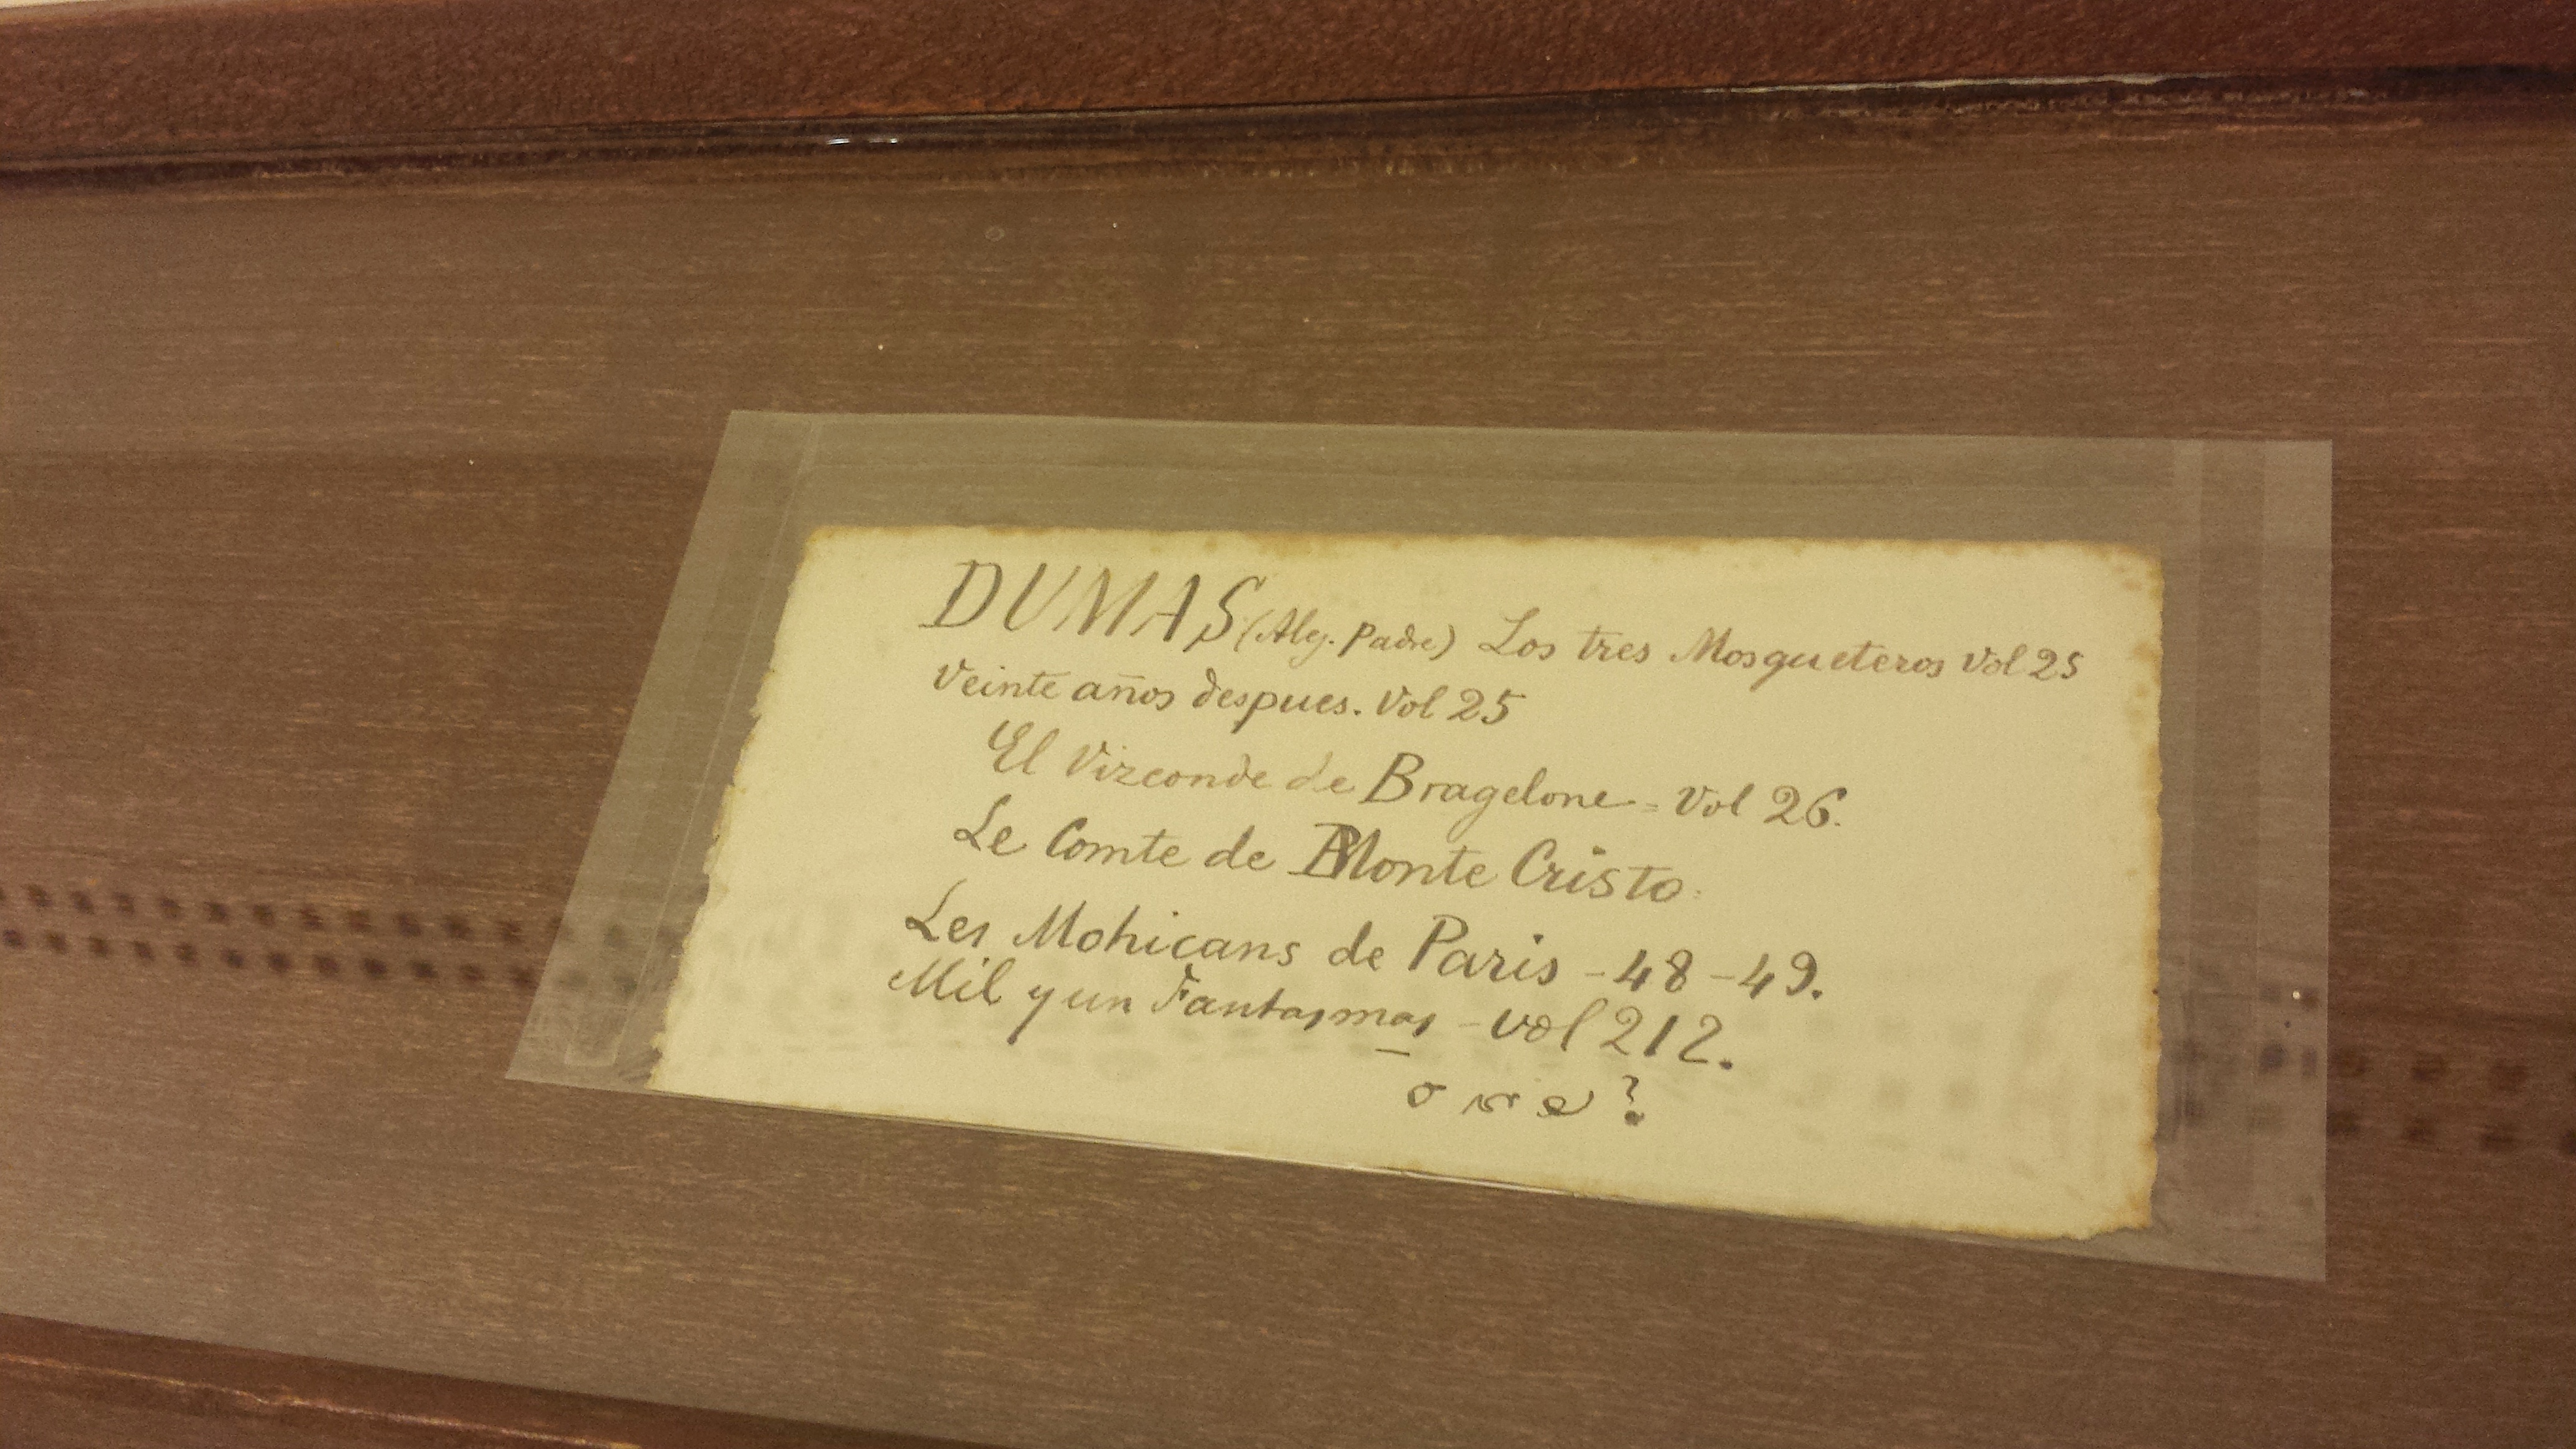 DUMAS (Alej. Padre) Los tres Mosqueteros Vol 25
Veinte años despues. Vol 25
El Vizconde de Bragelone = Vol 26.
Le Comte de Monte Cristo.
Les Mohicans de Paris - 48 - 49.
Mil y un Fantasmas - vol 212.